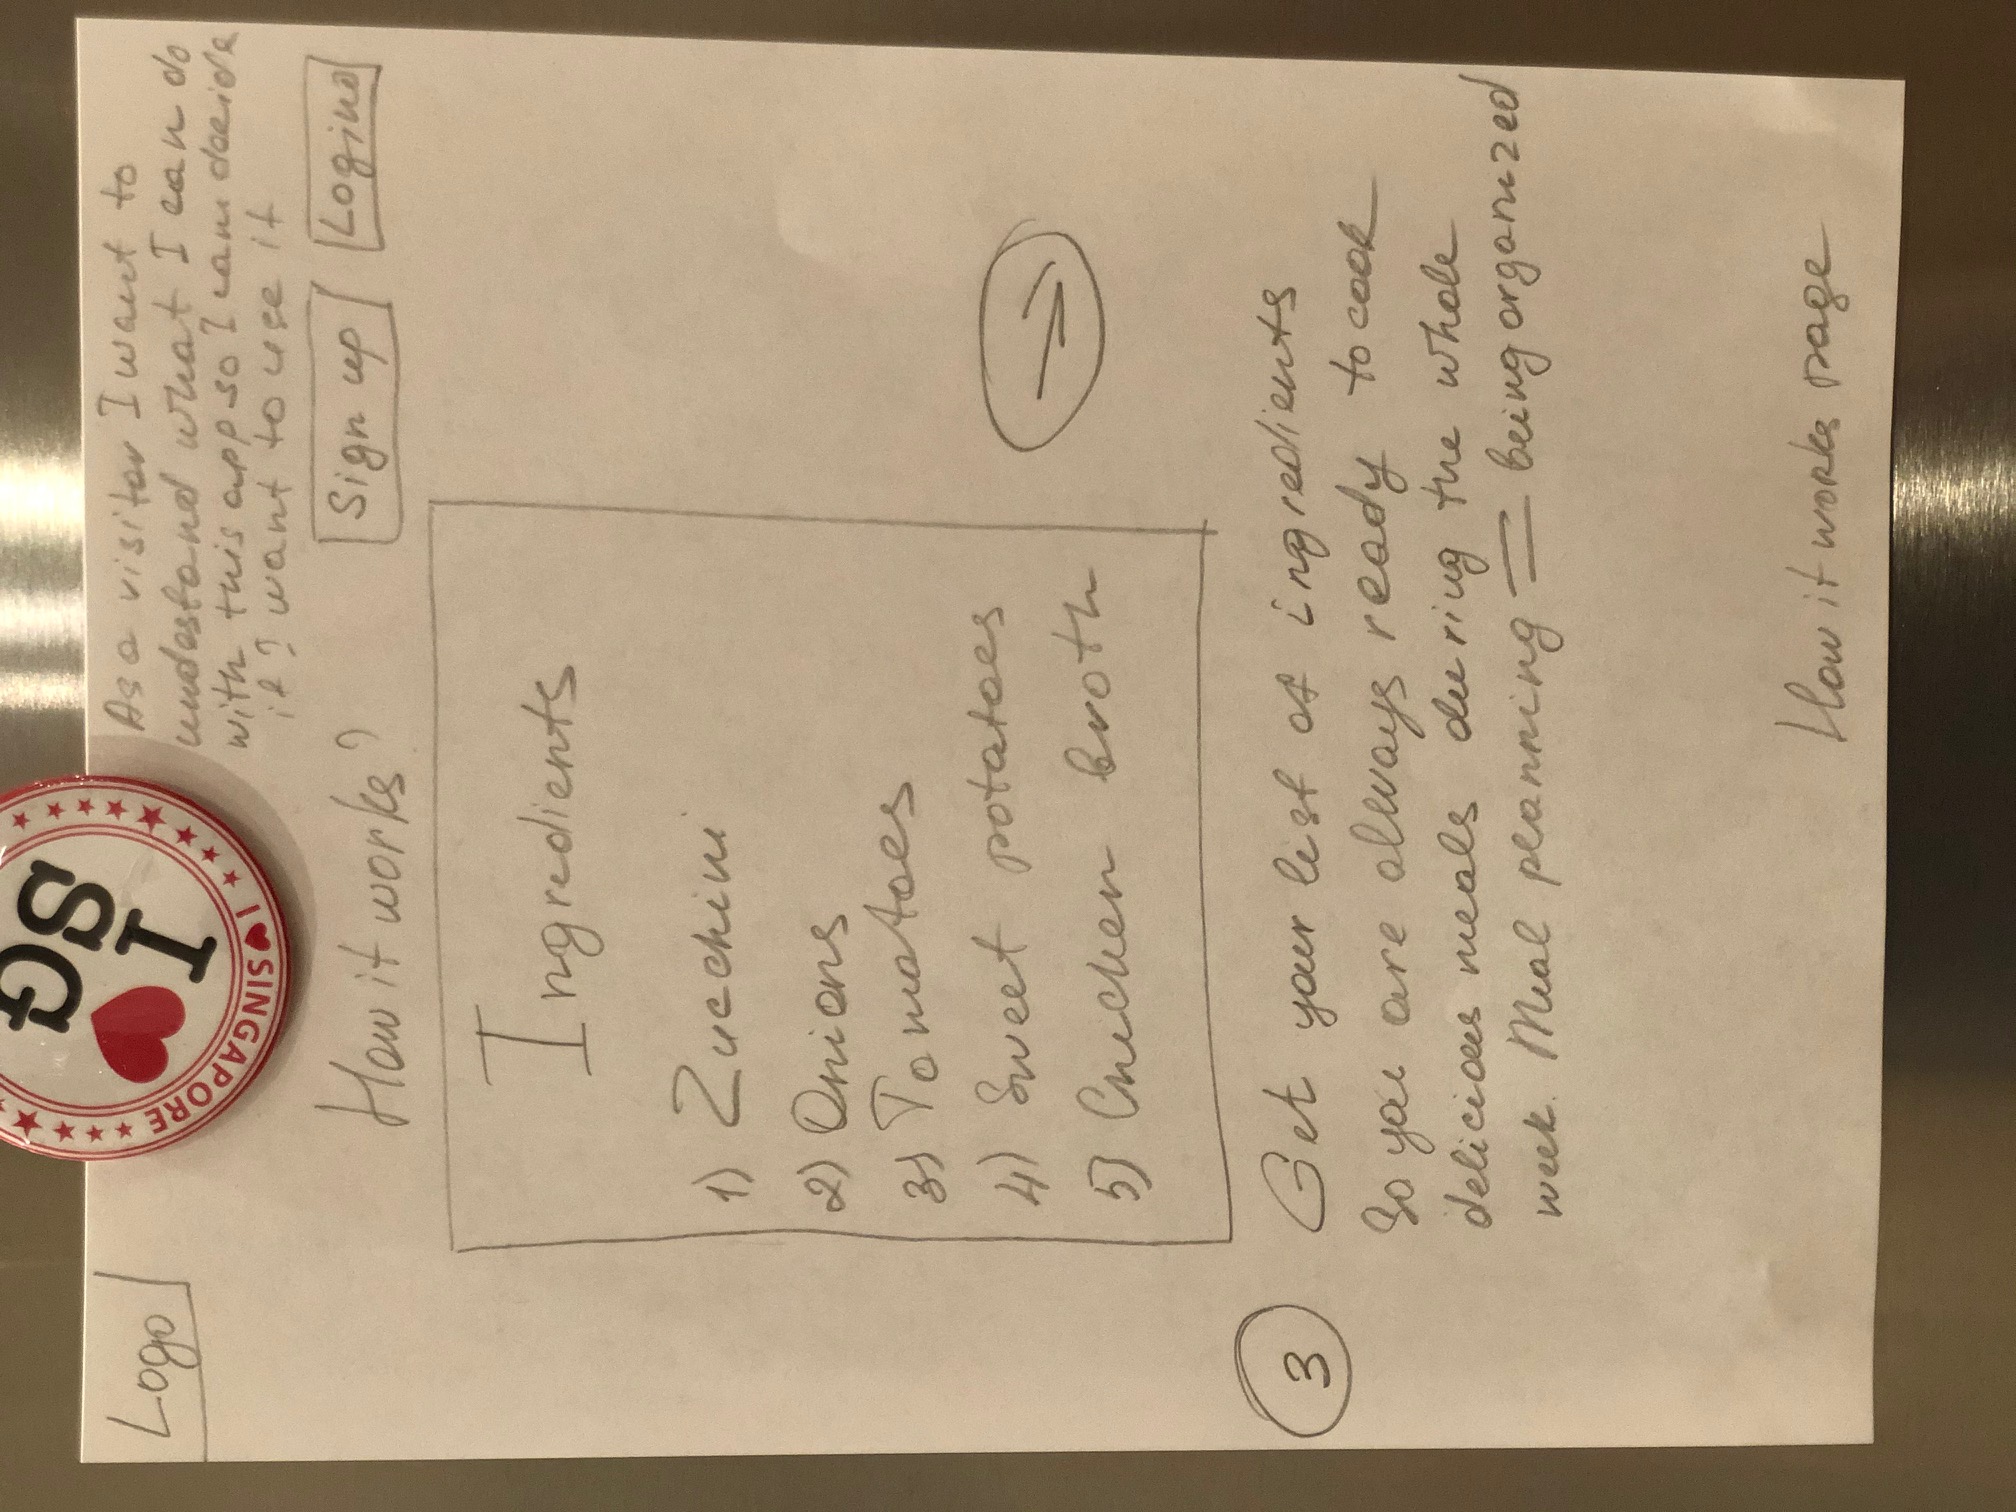 I ♥ SG
I ♥ SINGAPORE
Logo
As a visitor I want to
undestand what I can do
with this app so I can decide
if I want to use it
Sign up
Login
How it works?
Ingredients
1) Zucchini
2) Onions
3) Tomatoes
4) Sweet potatoes
5) Chicken broth
3
Get your list of ingredients
So you are always ready to cook
delicious meals during the whole
week. Meal planning = being organized
How it works page